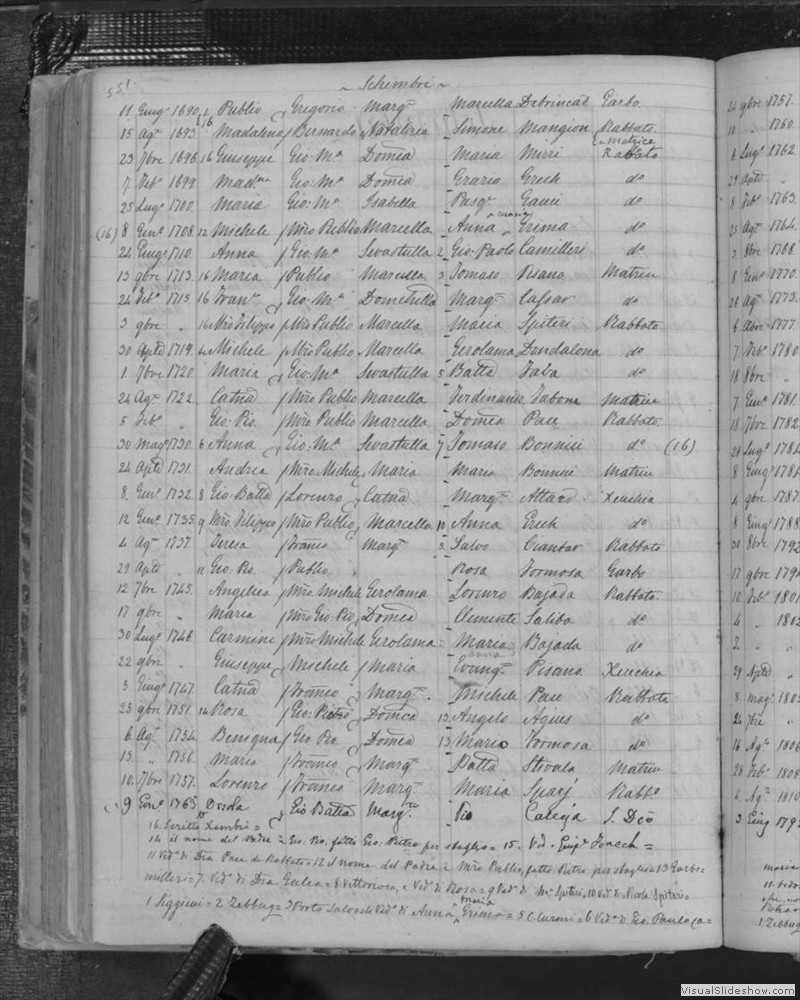 551.
~ Schembri ~
11 Giug° 1690. Publio Gregorio Marg.ta Marcella Debrincat Garbo.
15 Ag° 1693. Madalena Bernardo Natalizia Simone Mangion Rabbato.
Matrice
23 7bre 1696. 16 Giuseppe Gio: M.a Domca Maria Mizzi Rabbato
7 Feb° 1699. Mad.na Gio: M.a Domca Grazio Grech d°
25 Lug° 1700. Maria Gio: M.a Isabella Pasq.e Gauci d°
(16) 8 Gen° 1708. 12 Michele Mro Publio Marcella Anna maria Grima d°
24 Giug° 1710. Anna Gio: M.a Sevastulla 2 Gio: Paolo Camilleri d°
13 9bre 1713. 16 Maria Publio Marcella 3 Tomaso Pisano Matrice
26 Feb° 1715 16 Fran.co Gio: M.a Domchella Marg.ta Cassar d°
3 9bre " 16 Mro Filippo Mro Publio Marcella Maria Spiteri Rabbato
30 Aple 1719. 4 Michele Mro Publio Marcella Gerolama Dondalona d°
1. 7bre 1720. Maria Gio: M.a Sevastulla 5 Batta d°
24 Ag° 1722. Catna Mro Publio Marcella Ferdinando Tabone Matrice
5 Feb° " Gio: Pio. Mro Publio Marcella Domca Pace Rabbato
30 Mag° 1730. 6 Anna Gio: M.a Sevastulla 7 Tomaso Bonnici d° (16)
24 Aple 1731. Andrea Mro Michele Maria Maria Bonnici Matrice
8. Gen° 1732. 8 Gio: Batta Lorenzo Catna Marg.ta Attard Xeuchia
12 Gen° 1735. 9 Mro Filippo Mro Publio Marcella 10 Anna Grech d°
4 Ag° 1737. Teresa Franco Marg.ta 3. Salvo Ciantar Rabbato
29 Aple " 11 Gio: Po. Publio " Rosa Formosa Garbo
12 7bre 1745. Angelica Mro Michele Gerolama Lorenzo Bajada Rabbato.
17 9bre " Maria Mro Gio: Pio Domca Clemente Saliba d°
30 Lug° 1746. Carmine Mro Michele Gerolama = Maria Bajada d°
anna
22 9bre " Giuseppe Michele Maria Evang.ta Pisano Xeuchia
3 Giug° 1747. Catna Franco Marg.ta Michele Pace Rabbato
23 9bre 1751. 14 Rosa Gio: Pietro Domca 13. Angelo Agius d°
6 Ag° 1754. Benigna Gio Po. Domca 13 Mario Formosa d°
15 " 1756. Maria Franco Marg.ta Batta Stivala Matrice
10. 7bre 1757. Lorenzo Franco Marg.ta Maria Rabb°
9 Gen° 1765. Orsola Gio Batta Marg.ta Pio Calleja S. Dco
16. Scritto Xembri =
14 il nome del Padre = Gio: Po. fatto Gio: Pietro per sbaglio = 15. Ved.
11 Ved.a di Dia Pace di Rabbato = 12 il nome del Padre è Mro Publio, fatto Pietro per sbaglio = 13 Garbo =
milleri = 7. Ved.o di Dia Galea = 8 Vittoriosa, e Ved.o di Rosa = 9 Ved.o di Ma Spiteri, 10 Ved.a di Spiteri =
1 Siggieui = 2 Zebbug = 3 Porto Salvo di Anna maria Grima = 5 C. Curmi = 6 Ved.a di Gio: Paulo Ca =
24 9bre 1757.
" 1760.
1762
29 Aple "
8 Feb° 1763.
23 Ag° 1764.
3 8bre 1768
8 Gen° 1770.
28 Ag° 1773.
1777
7 Feb° 1780
18 8bre "
7 Gen° 1781.
18 7bre 1782.
28 Lug° 1784
8 Giug° 1784
4 9bre 1787
8 Giug° 1788
30 8bre 1792
17 9bre 179
10 Feb° 1801
4 " 1802
" "
29 Aple "
8 mag° 180
24 7bre "
16 Ag° 1806
28 Feb° 1808
6 Ag° 1810
3 Giug 179
maria
1 Zebbug
VisualSlideshow.com